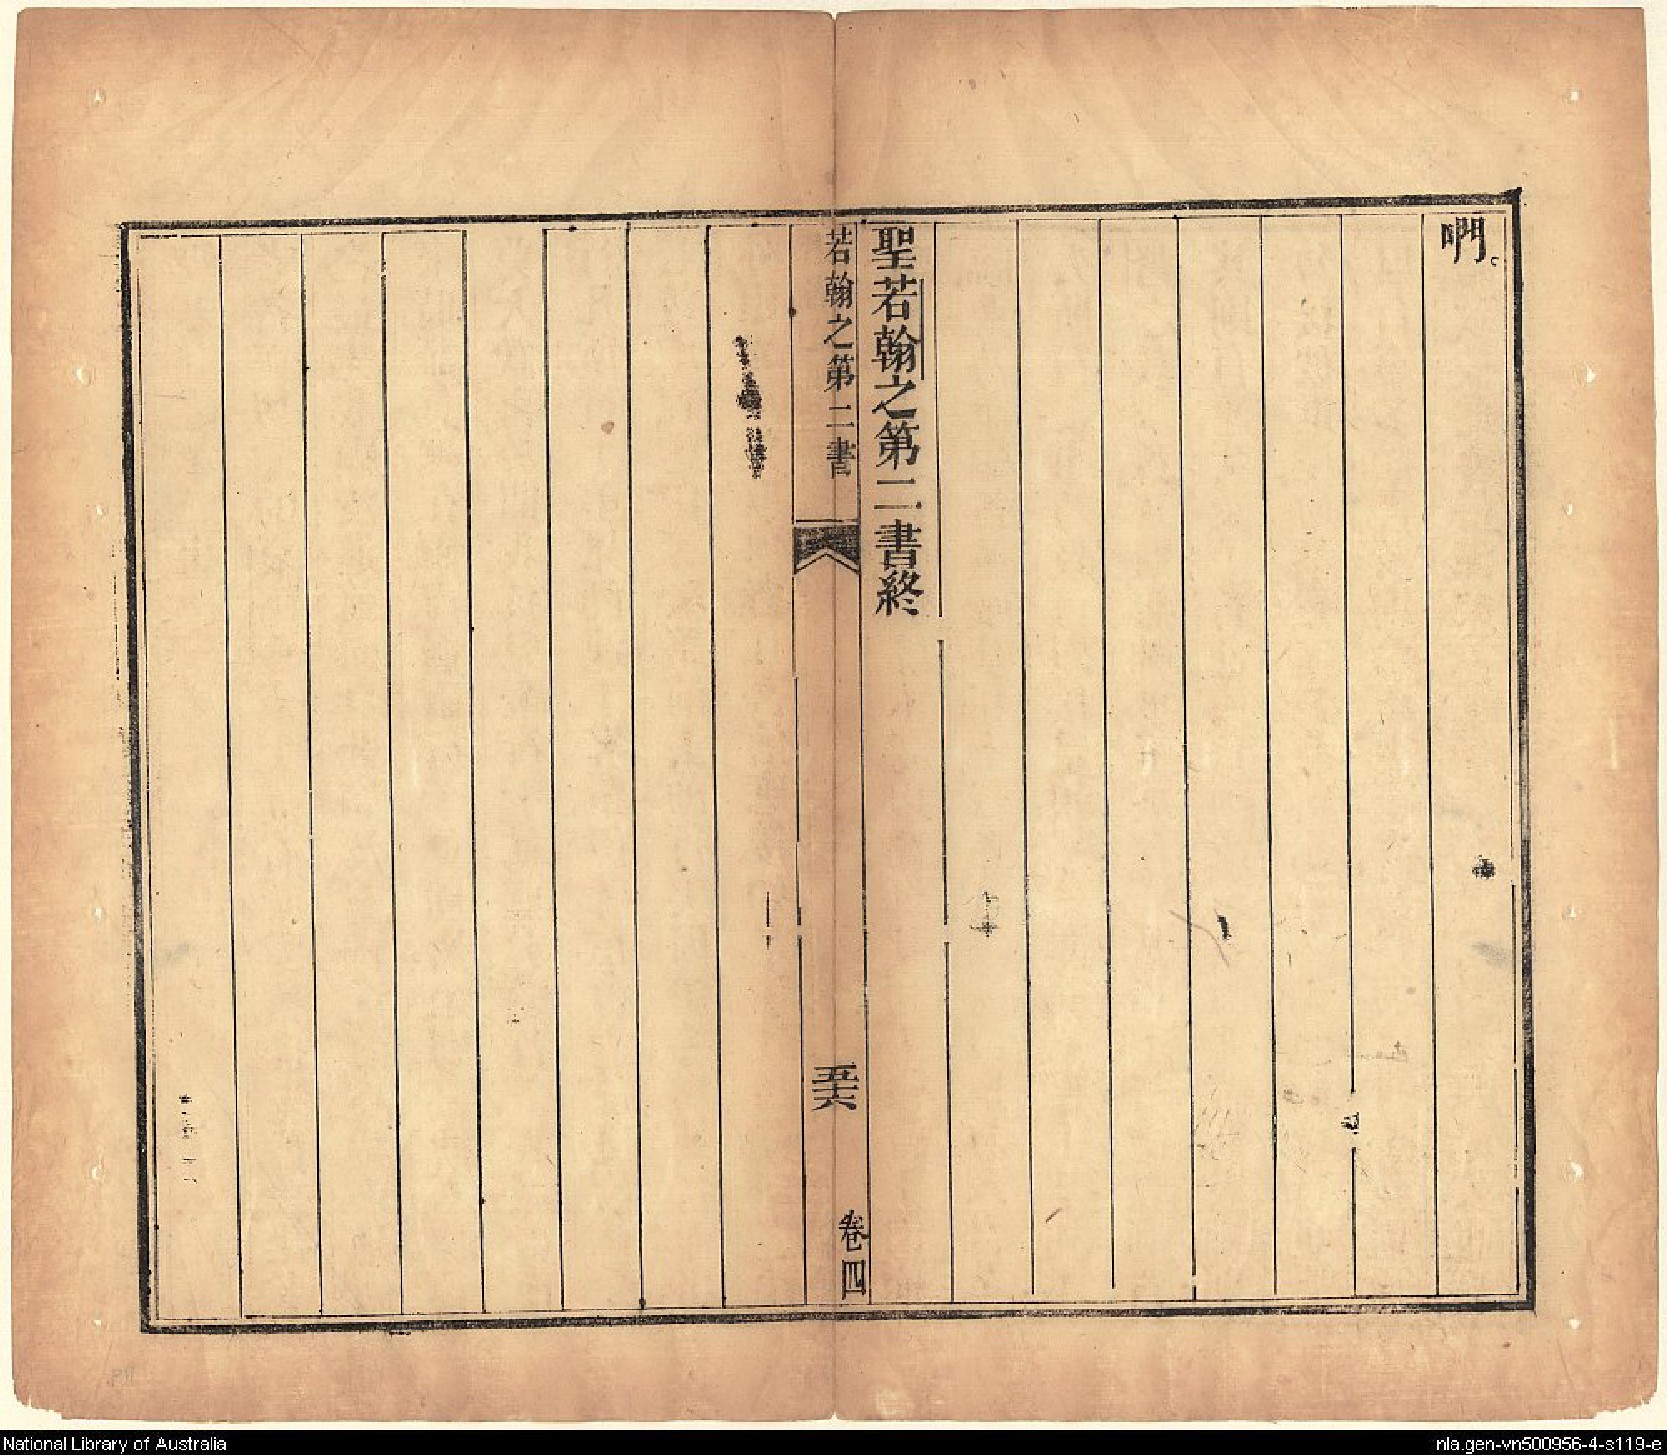 啊。
聖若翰之第二書終
若翰之第二書
五十六
卷四
National Library of Australia
nla.gen-vn500956-4-s119-e